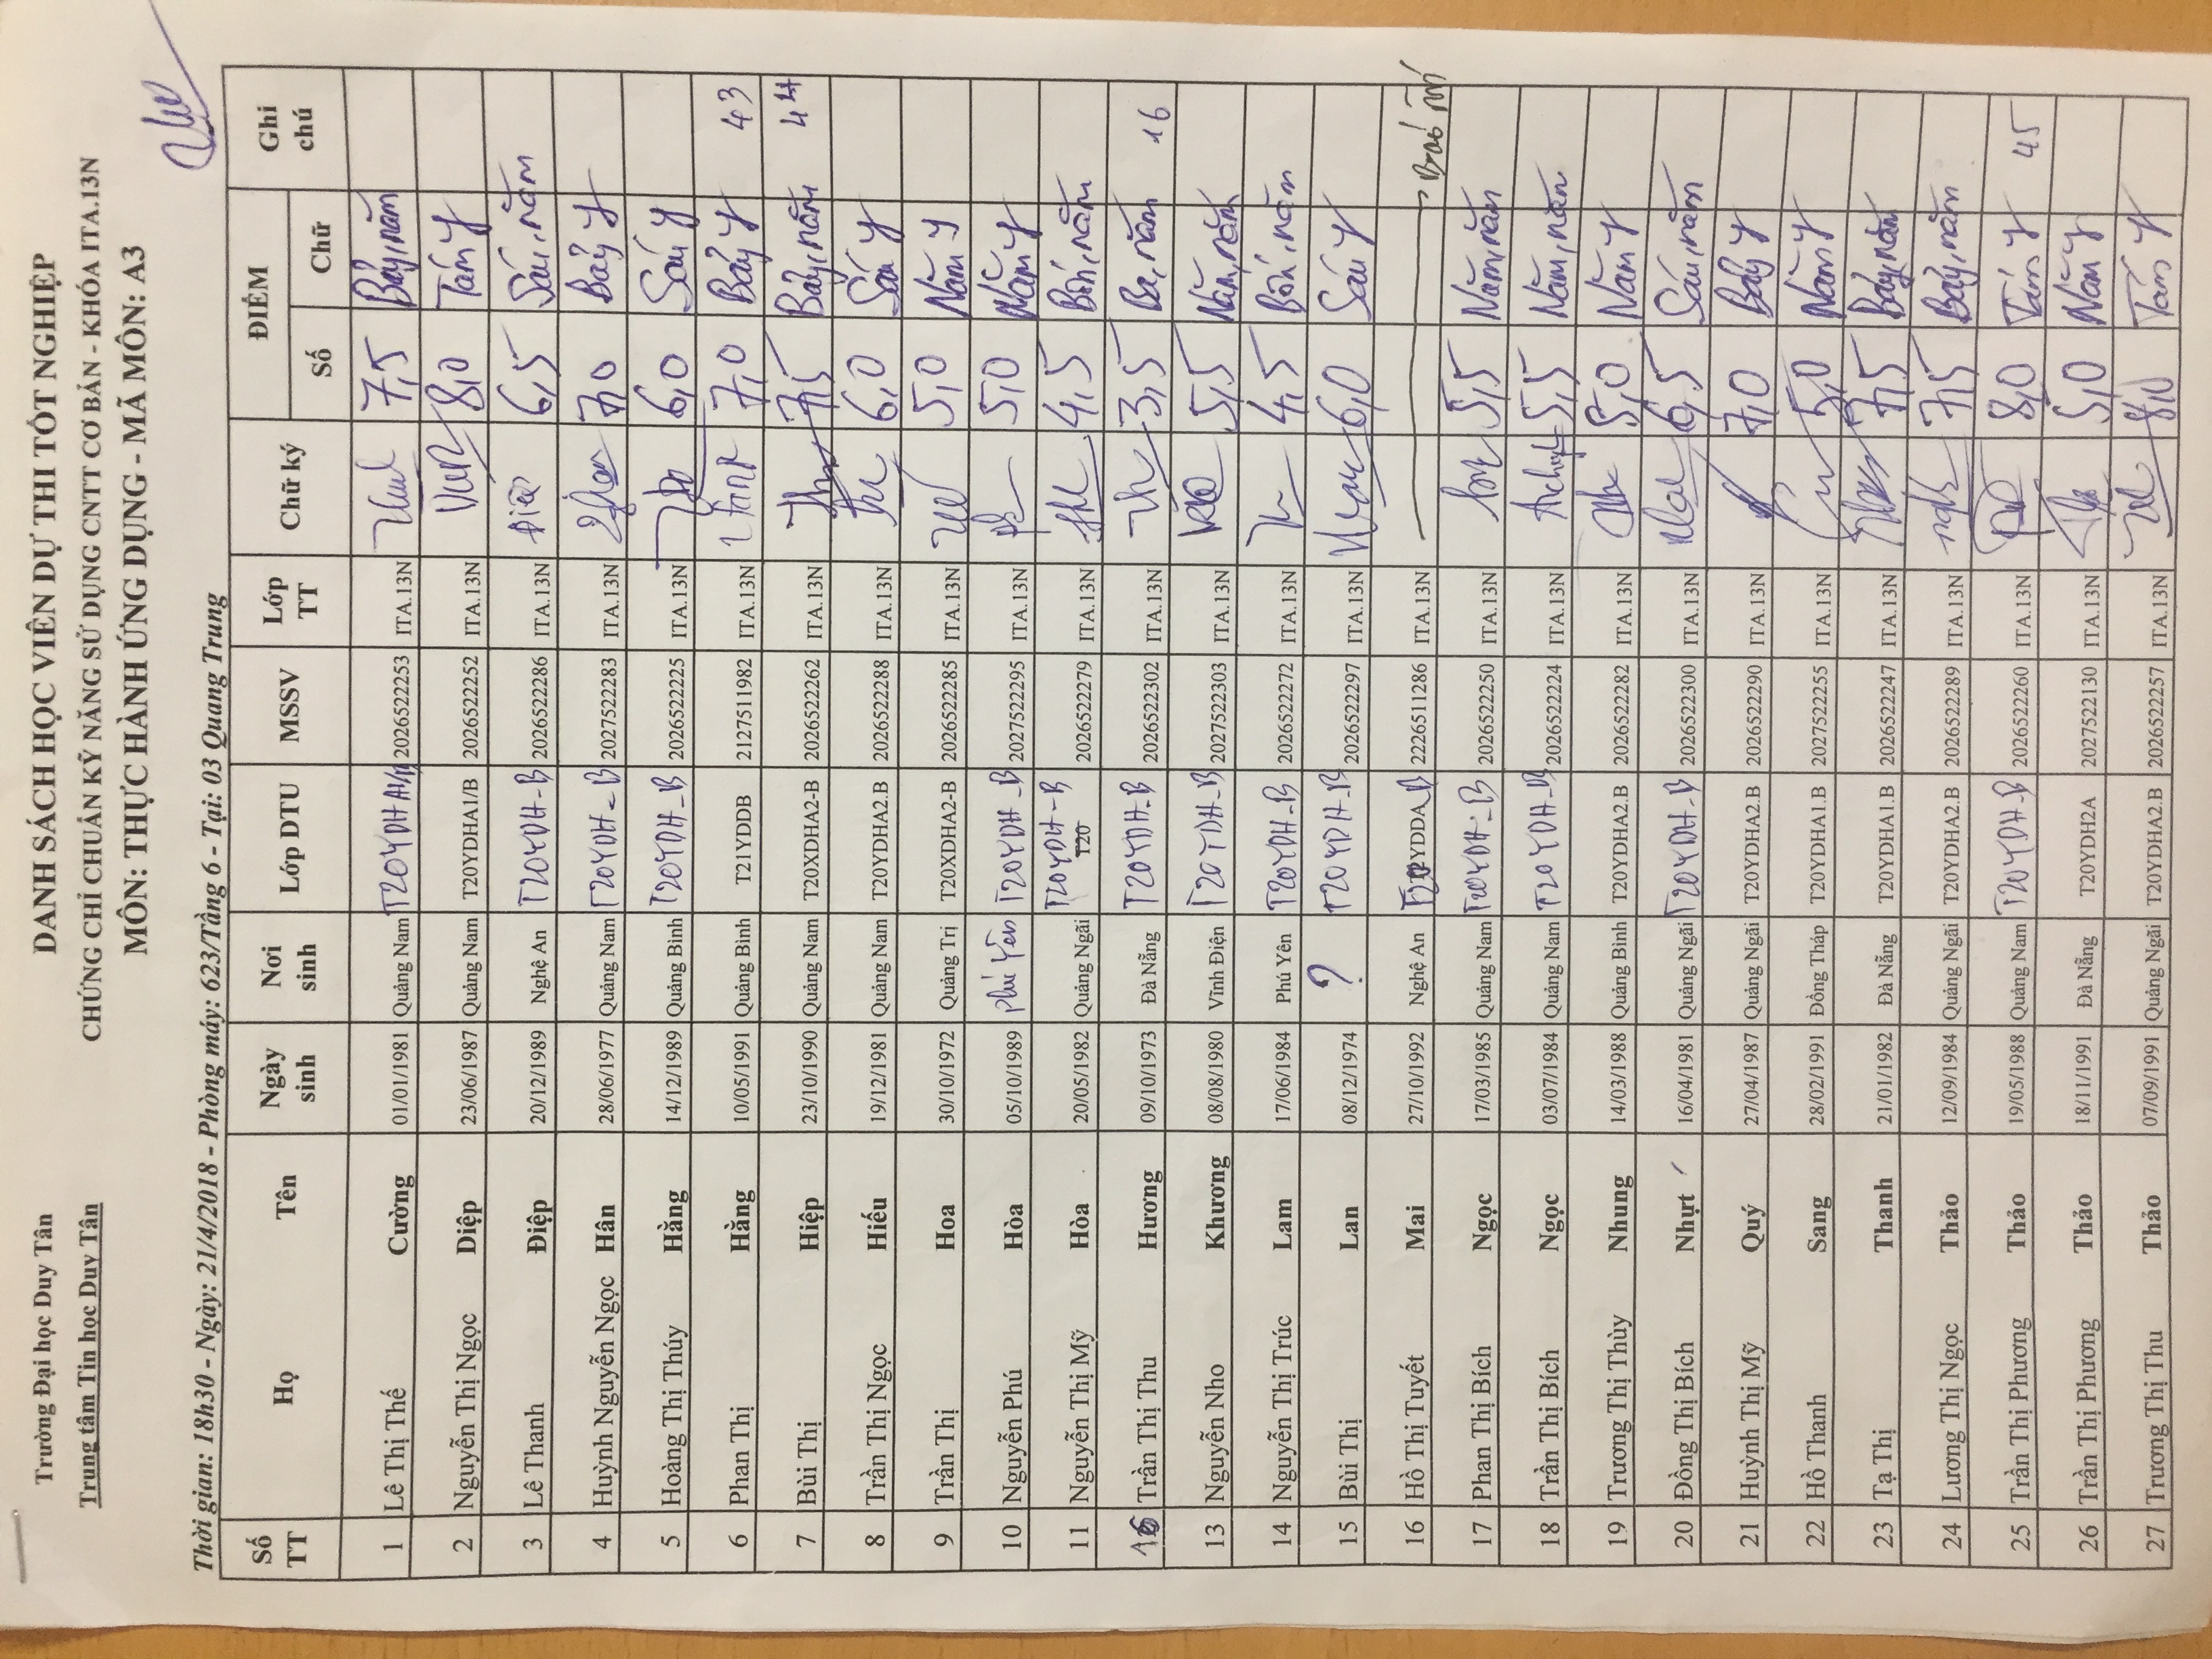 Trường Đại học Duy Tân
Trung tâm Tin học Duy Tân
DANH SÁCH HỌC VIÊN DỰ THI TỐT NGHIỆP
CHỨNG CHỈ CHUẨN KỸ NĂNG SỬ DỤNG CNTT CƠ BẢN - KHÓA ITA.13N
MÔN: THỰC HÀNH ỨNG DỤNG - MÃ MÔN: A3
Thời gian: 18h30 - Ngày: 21/4/2018 - Phòng máy: 623/Tầng 6 - Tại: 03 Quang Trung
Số TT Họ Tên Ngày sinh Nơi sinh Lớp DTU MSSV Lớp TT Chữ ký ĐIỂM Số Chữ Ghi chú
1 Lê Thị Thế Cường 01/01/1981 Quảng Nam 2026522253 ITA.13N 7,5 Bảy, năm
2 Nguyễn Thị Ngọc Diệp 23/06/1987 Quảng Nam T20YDHA1/B 2026522252 ITA.13N 8,0 Tám y
3 Lê Thanh Điệp 20/12/1989 Nghệ An T20YDH-B 2026522286 ITA.13N Điệp 6,5 Sáu, năm
4 Huỳnh Nguyễn Ngọc Hân 28/06/1977 Quảng Nam T20YDH-B 2027522283 ITA.13N 7,0 Bảy y
5 Hoàng Thị Thúy Hằng 14/12/1989 Quảng Bình T20YDH-B 2026522225 ITA.13N 6,0 Sáu y
6 Phan Thị Hằng 10/05/1991 Quảng Bình T21YDDB 2127511982 ITA.13N 7,0 Bảy y 43
7 Bùi Thị Hiệp 23/10/1990 Quảng Nam T20XDHA2-B 2026522262 ITA.13N 7,5 Bảy, năm 44
8 Trần Thị Ngọc Hiếu 19/12/1981 Quảng Nam T20YDHA2.B 2026522288 ITA.13N 6,0 Sáu y
9 Trần Thị Hoa 30/10/1972 Quảng Trị T20XDHA2-B 2026522285 ITA.13N 5,0 Năm y
10 Nguyễn Phú Hòa 05/10/1989 Phú Yên T20YDH-B 2027522295 ITA.13N 5,0 Năm y
11 Nguyễn Thị Mỹ Hòa 20/05/1982 Quảng Ngãi T20YDH-B T20 2026522279 ITA.13N 4,5 Bốn, năm
Trần Thị Thu Hương 09/10/1973 Đà Nẵng T20YDH-B 2026522302 ITA.13N 3,5 Ba, năm 16
13 Nguyễn Nho Khương 08/08/1980 Vĩnh Điện T20YDH-B 2027522303 ITA.13N 5,5 Năm, năm
14 Nguyễn Thị Trúc Lam 17/06/1984 Phú Yên T20YDH-B 2026522272 ITA.13N 4,5 Bốn, năm
15 Bùi Thị Lan 08/12/1974 ? T20YDH-B 2026522297 ITA.13N 6,0 Sáu y
16 Hồ Thị Tuyết Mai 27/10/1992 Nghệ An 2226511286 ITA.13N
17 Phan Thị Bích Ngọc 17/03/1985 Quảng Nam T20YDH-B 2026522250 ITA.13N 5,5 Năm, năm
18 Trần Thị Bích Ngọc 03/07/1984 Quảng Nam T20YDH-B 2026522224 ITA.13N 5,5 Năm, năm
19 Trương Thị Thùy Nhung 14/03/1988 Quảng Bình T20YDHA2.B 2026522282 ITA.13N 5,0 Năm y
20 Đồng Thị Bích Nhựt 16/04/1981 Quảng Ngãi T20YDH-B 2026522300 ITA.13N 6,5 Sáu, năm
21 Huỳnh Thị Mỹ Quý 27/04/1987 Quảng Ngãi T20YDHA2.B 2026522290 ITA.13N 7,0 Bảy y
22 Hồ Thanh Sang 28/02/1991 Đồng Tháp T20YDHA1.B 2027522255 ITA.13N 5,0 Năm y
23 Tạ Thị Thanh 21/01/1982 Đà Nẵng T20YDHA1.B 2026522247 ITA.13N 7,5 Bảy, năm
24 Lương Thị Ngọc Thảo 12/09/1984 Quảng Ngãi T20YDHA2.B 2026522289 ITA.13N 7,5 Bảy, năm
25 Trần Thị Phương Thảo 19/05/1988 Quảng Nam T20YDH-B 2026522260 ITA.13N 8,0 Tám y 45
26 Trần Thị Phương Thảo 18/11/1991 Đà Nẵng T20YDH2A 2027522130 ITA.13N 5,0 Năm y
27 Trương Thị Thu Thảo 07/09/1991 Quảng Ngãi T20YDHA2.B 2026522257 ITA.13N 8,0 Tám y